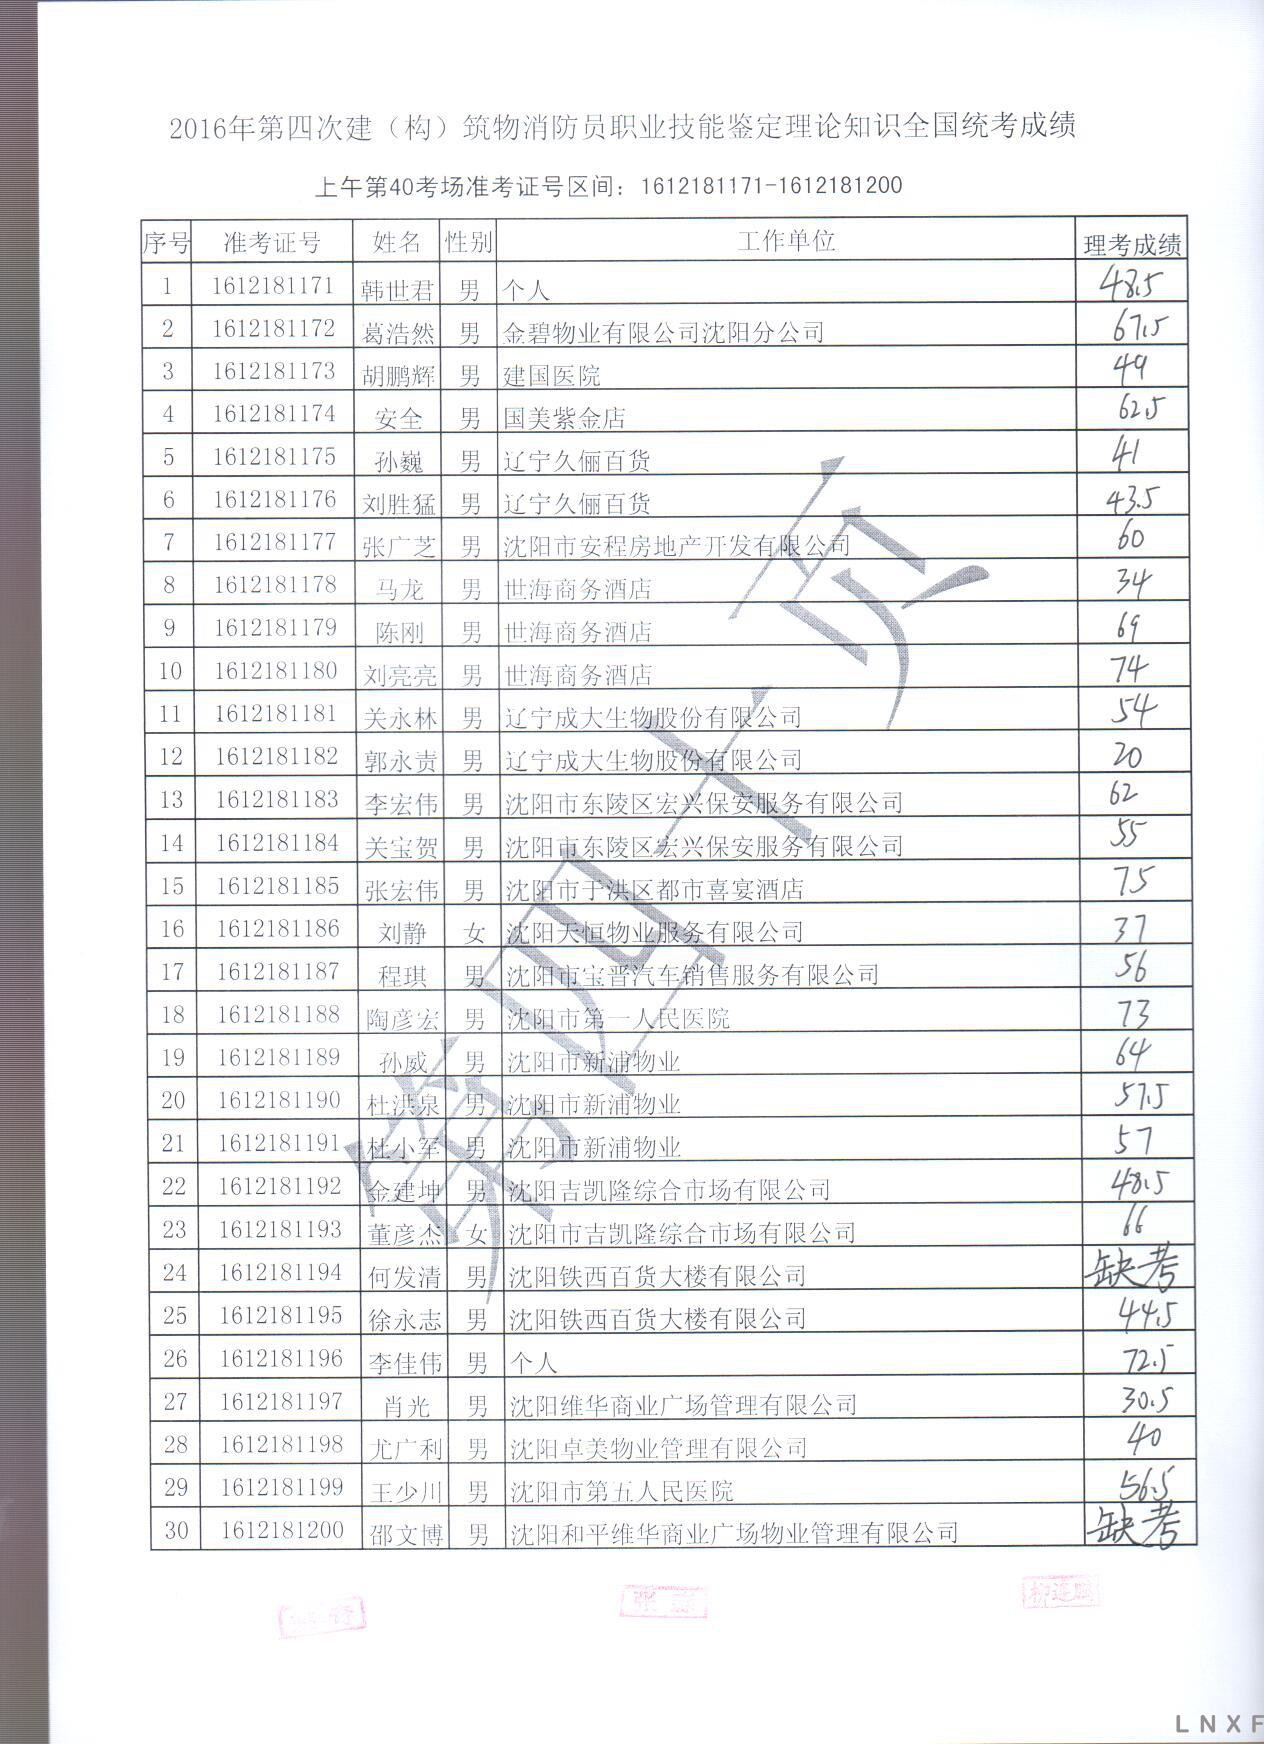 2016年第四次建（构）筑物消防员职业技能鉴定理论知识全国统考成绩
上午第40考场准考证号区间：1612181171-1612181200
序号 准考证号 姓名 性别 工作单位 理考成绩
1 1612181171 韩世君 男 个人 48.5
2 1612181172 葛浩然 男 金碧物业有限公司沈阳分公司 67.5
3 1612181173 胡鹏辉 男 建国医院 49
4 1612181174 安全 男 国美紫金店 62.5
5 1612181175 孙巍 男 辽宁久俪百货 41
6 1612181176 刘胜猛 男 辽宁久俪百货 43.5
7 1612181177 张广芝 男 沈阳市安程房地产开发有限公司 60
8 1612181178 马龙 男 世海商务酒店 34
9 1612181179 陈刚 男 世海商务酒店 69
10 1612181180 刘亮亮 男 世海商务酒店 74
11 1612181181 关永林 男 辽宁成大生物股份有限公司 54
12 1612181182 郭永责 男 辽宁成大生物股份有限公司 20
13 1612181183 李宏伟 男 沈阳市东陵区宏兴保安服务有限公司 62
14 1612181184 关宝贺 男 沈阳市东陵区宏兴保安服务有限公司 55
15 1612181185 张宏伟 男 沈阳市于洪区都市喜宴酒店 75
16 1612181186 刘静 女 沈阳天恒物业服务有限公司 37
17 1612181187 程琪 男 沈阳市宝晋汽车销售服务有限公司 56
18 1612181188 陶彦宏 男 沈阳市第一人民医院 73
19 1612181189 孙威 男 沈阳市新浦物业 64
20 1612181190 杜洪泉 男 沈阳市新浦物业 57.5
21 1612181191 杜小军 男 沈阳市新浦物业 57
22 1612181192 金建坤 男 沈阳吉凯隆综合市场有限公司 48.5
23 1612181193 董彦杰 女 沈阳市吉凯隆综合市场有限公司 66
24 1612181194 何发清 男 沈阳铁西百货大楼有限公司 缺考
25 1612181195 徐永志 男 沈阳铁西百货大楼有限公司 44.5
26 1612181196 李佳伟 男 个人 72.5
27 1612181197 肖光 男 沈阳维华商业广场管理有限公司 30.5
28 1612181198 尤广利 男 沈阳卓美物业管理有限公司 40
29 1612181199 王少川 男 沈阳市第五人民医院 56.5
30 1612181200 邵文博 男 沈阳和平维华商业广场物业管理有限公司 缺考
第四十页
LNXF